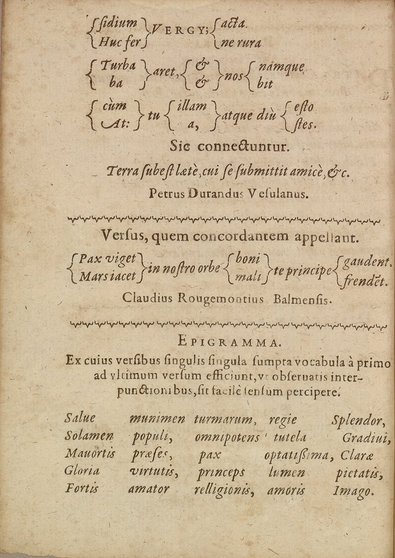 {ſidium } VERGY; { acta.
{Huc fer } { ne rura
{ Turba } aret, { & } nos { námque
{ ba } { & } { bit
{ cùm } tu { illam } atque diù { eſto
{ At: } { a, } { ſtes.
Sic connectuntur.
Terra ſubeſt lætè, cui ſe ſubmittit amicè, &c.
Petrus Durandus Veſulanus.
Verſus, quem concordantem appellant.
{ Pax viget } in noſtro orbe { boni } te principe { gaudent.
{ Mars iacet } { mali } { frendẽt.
Claudius Rougemontius Balmenſis.
EPIGRAMMA.
Ex cuius verſibus ſingulis ſingula ſumpta vocabula à primo
ad vltimum verſum efficiunt, vt obſeruatis inter-
punctionibus, ſit facilè ſenſum percipere.
Salue munimen turmarum, regie Splendor,
Solamen populi, omnipotens tutela Gradiui,
Mauortis præſes, pax optatißima, Claræ
Gloria virtutis, princeps lumen pietatis,
Fortis amator relligionis, amoris Imago.